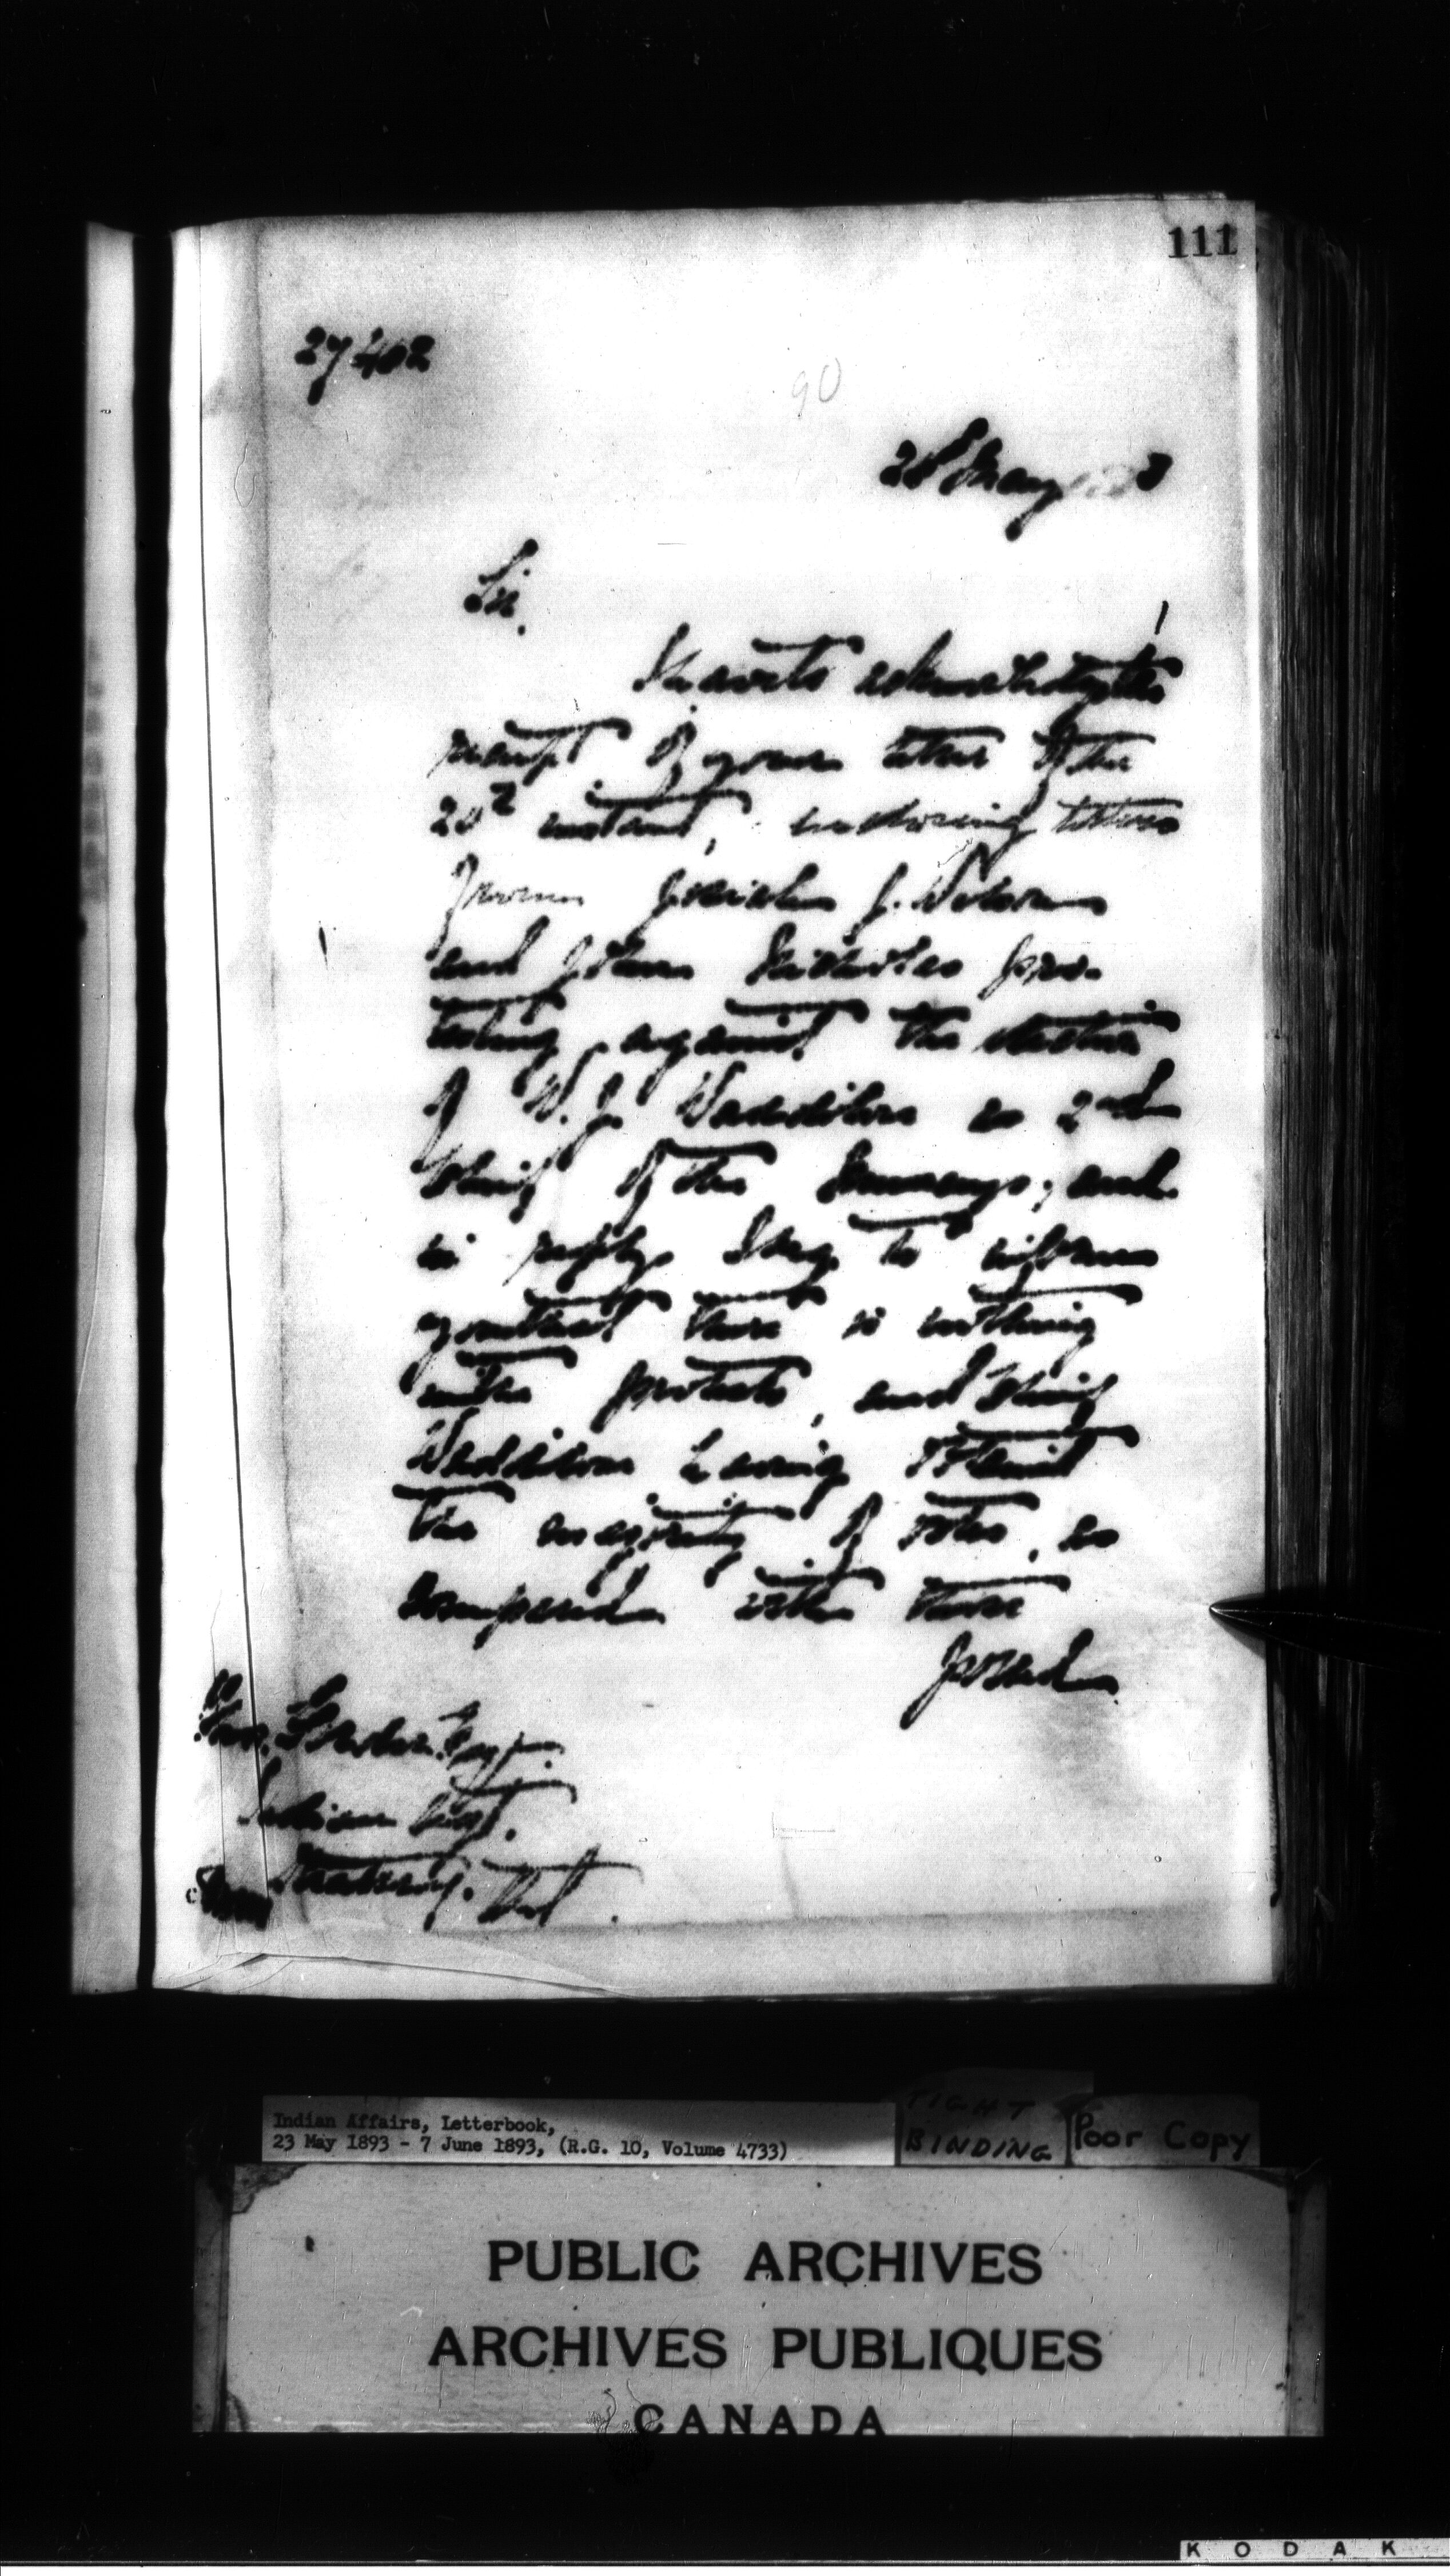 111
27402
90
May 3
Sir,
I have to acknowledge the
receipt of your letter of the
instant, enclosing letters
from J.
and John Nicholas pro-
testing against the election
of W. J. Waddilove as 2nd
Chief of the Munceys, and
in reply I beg to inform
you that there is nothing
in the protests, and Chief
Waddilove having obtained
the majority of votes, as
compared with those
polled
Gordon Esq.
Indian Agt.
Strathroy. Ont.
Indian Affairs, Letterbook,
23 May 1893 - 7 June 1893, (R.G. 10, Volume 4733)
TIGHT
BINDING
Poor Copy
PUBLIC ARCHIVES
ARCHIVES PUBLIQUES
CANADA
KODAK